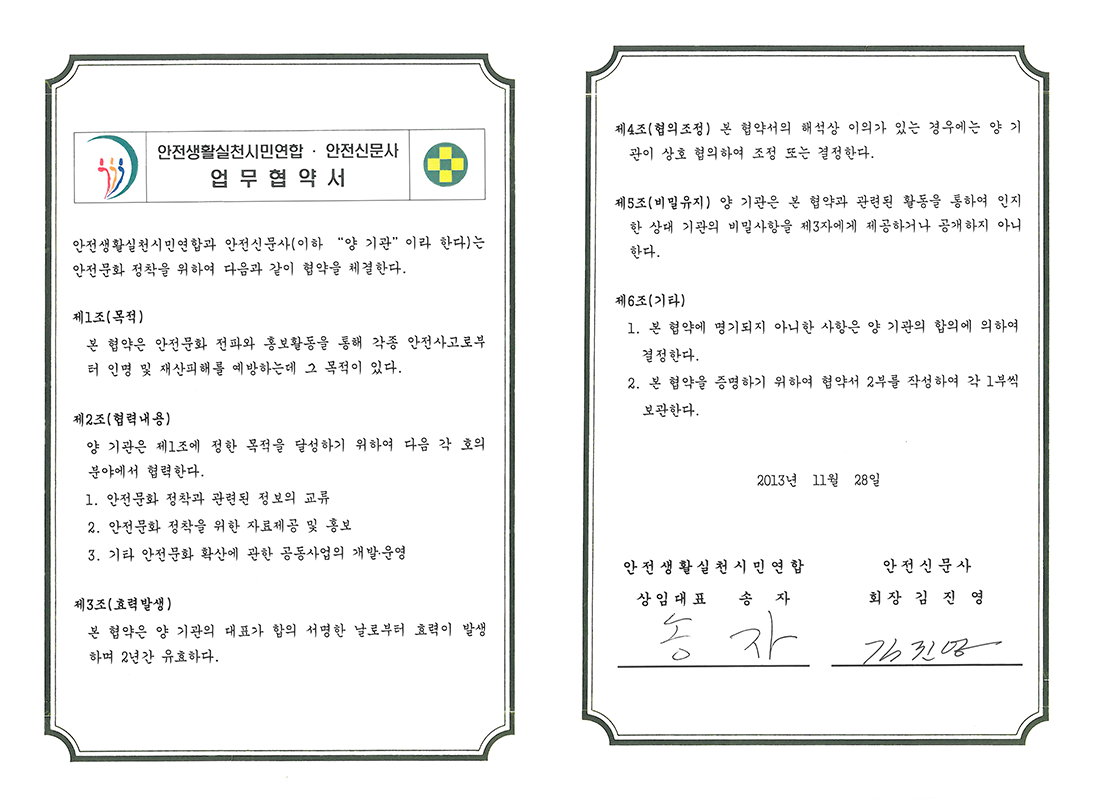 안전생활실천시민연합 · 안전신문사
업무협약서
안전생활실천시민연합과 안전신문사(이하 “양 기관”이라 한다)는
안전문화 정착을 위하여 다음과 같이 협약을 체결한다.
제1조(목적)
본 협약은 안전문화 전파와 홍보활동을 통해 각종 안전사고로부
터 인명 및 재산피해를 예방하는데 그 목적이 있다.
제2조(협력내용)
양 기관은 제1조에 정한 목적을 달성하기 위하여 다음 각 호의
분야에서 협력한다.
1. 안전문화 정착과 관련된 정보의 교류
2. 안전문화 정착을 위한 자료제공 및 홍보
3. 기타 안전문화 확산에 관한 공동사업의 개발·운영
제3조(효력발생)
본 협약은 양 기관의 대표가 합의 서명한 날로부터 효력이 발생
하며 2년간 유효하다.
제4조(협의조정) 본 협약서의 해석상 이의가 있는 경우에는 양 기
관이 상호 협의하여 조정 또는 결정한다.
제5조(비밀유지) 양 기관은 본 협약과 관련된 활동을 통하여 인지
한 상대 기관의 비밀사항을 제3자에게 제공하거나 공개하지 아니
한다.
제6조(기타)
1. 본 협약에 명기되지 아니한 사항은 양 기관의 합의에 의하여
결정한다.
2. 본 협약을 증명하기 위하여 협약서 2부를 작성하여 각 1부씩
보관한다.
2013년 11월 28일
안전생활실천시민연합
상임대표 송 자
송 자
안전신문사
회장 김 진 영
김진영